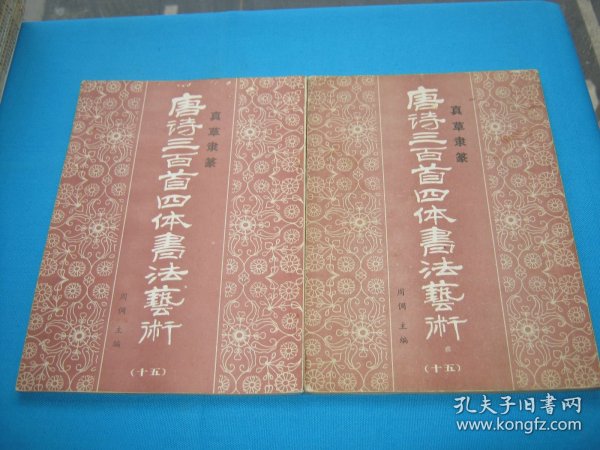 真草隶篆
唐诗三百首四体书法藝術
周倜 主编
(十五)
真草隶篆
唐诗三百首四体书法藝術
周倜 主编
(十五)
孔夫子旧书网
www.kongfz.com